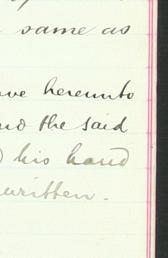 same as
hereunto
and the said
his hand
written.